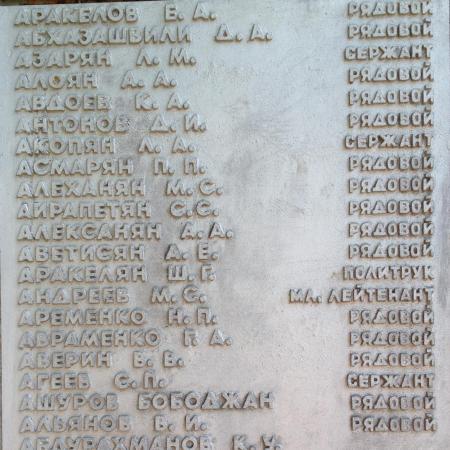 АРАКЕЛОВ Е. А. РЯДОВОЙ
АБХАЗАШВИЛИ Д. А. РЯДОВОЙ
АЗАРЯН Л. М. СЕРЖАНТ
АЛОЯН А. А. РЯДОВОЙ
АВДОЕВ К. А. РЯДОВОЙ
АНТОНОВ Д. И. РЯДОВОЙ
АКОПЯН Л. А. СЕРЖАНТ
АСМАРЯН П. П. РЯДОВОЙ
АЛЕХАНЯН М. С. РЯДОВОЙ
АЙРАПЕТЯН С. С. РЯДОВОЙ
АЛЕКСАНЯН А. А. РЯДОВОЙ
АВЕТИСЯН А. Е. РЯДОВОЙ
АРАКЕЛЯН Ш. Г. ПОЛИТРУК
АНДРЕЕВ М. С. МЛ. ЛЕЙТЕНАНТ
АРЕМЕНКО Н. П. РЯДОВОЙ
АВРАМЕНКО Г. А. РЯДОВОЙ
АВЕРИН В. В. РЯДОВОЙ
АГЕЕВ С. П. СЕРЖАНТ
АШУРОВ БОБОДЖАН РЯДОВОЙ
АЛЬЯНОВ В. И. РЯДОВОЙ
АБДУРАХМАНОВ К. У.